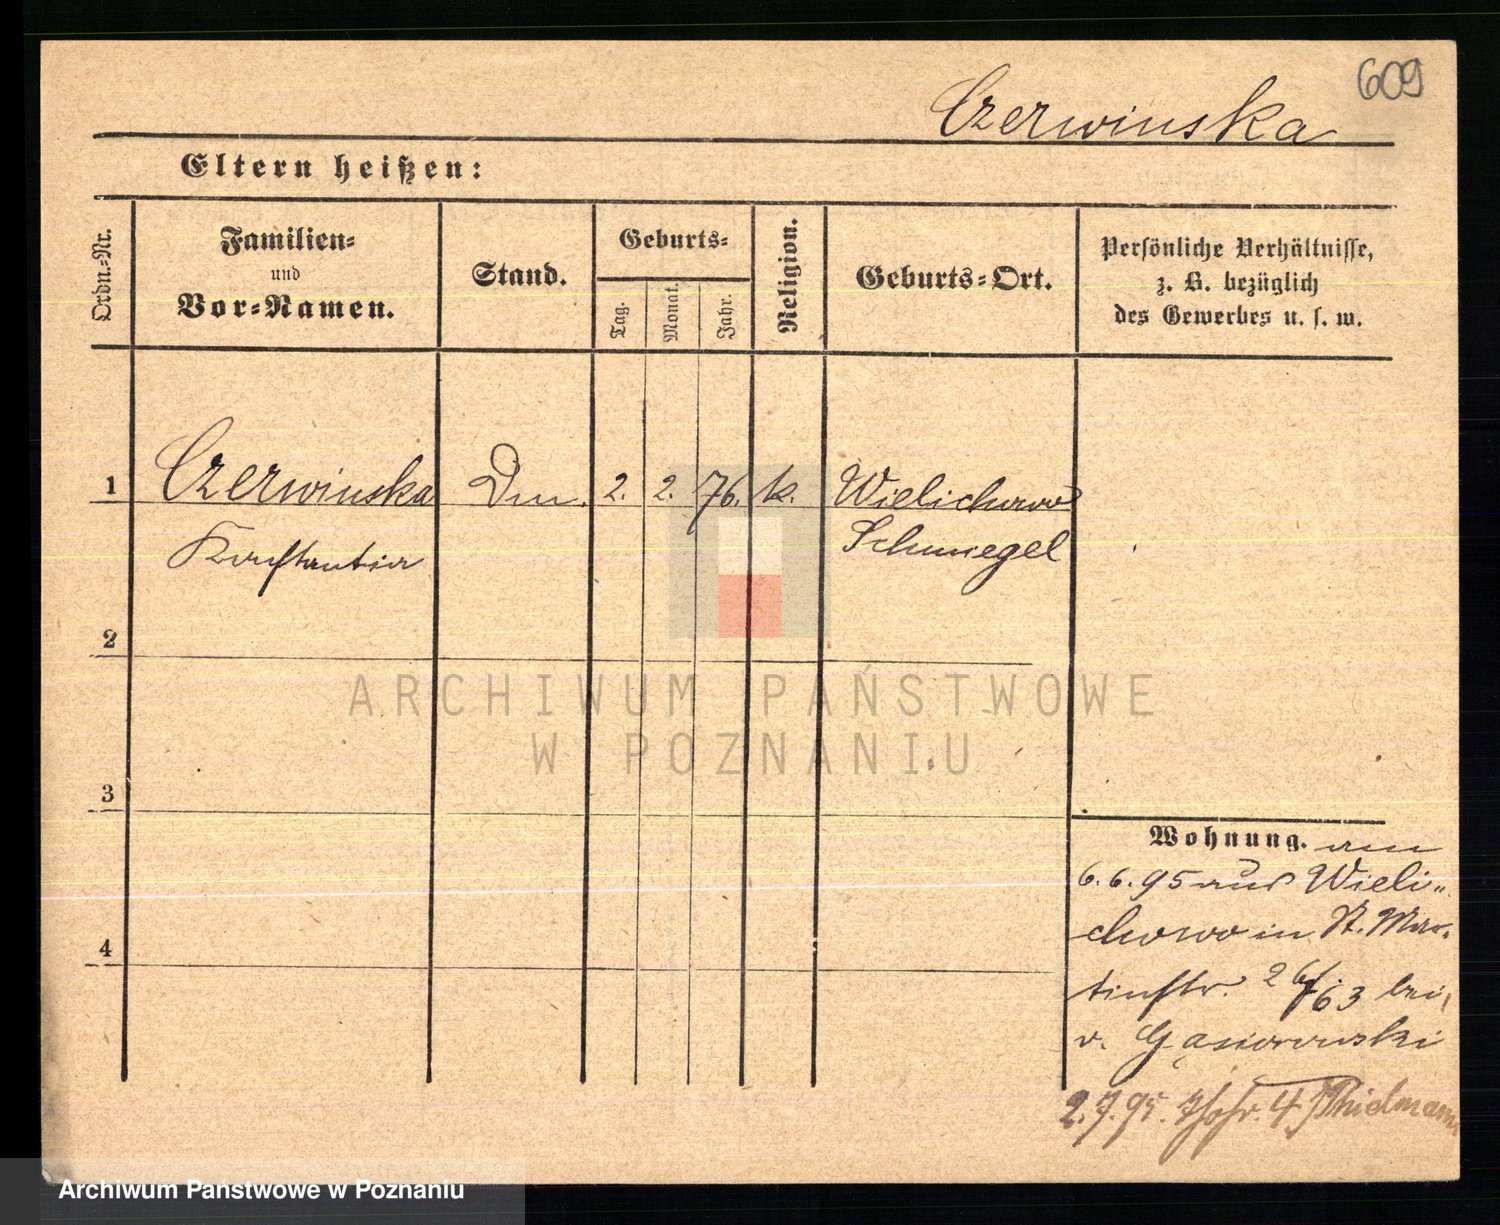 609
Czerwinska
Eltern heißen:
Ordn.-Nr.
Familien-
und
Vor-Namen.
Stand.
Geburts-
Tag.
Monat.
Jahr.
Religion.
Geburts-Ort.
Persönliche Verhältnisse,
z. B. bezüglich
des Gewerbes u. s. w.
1 Czerwinska Dm. 2. 2. 76. k. Wielichowo
Konstantia Schmiegel
2
3
4
Wohnung. am
6.6.95 aus Wieli-
chowo in St. Mar-
tinstr. 63 bei
v. Gąsiorowski
2.7.95. 4
ARCHIWUM PAŃSTWOWE
W POZNANIU
Archiwum Państwowe w Poznaniu